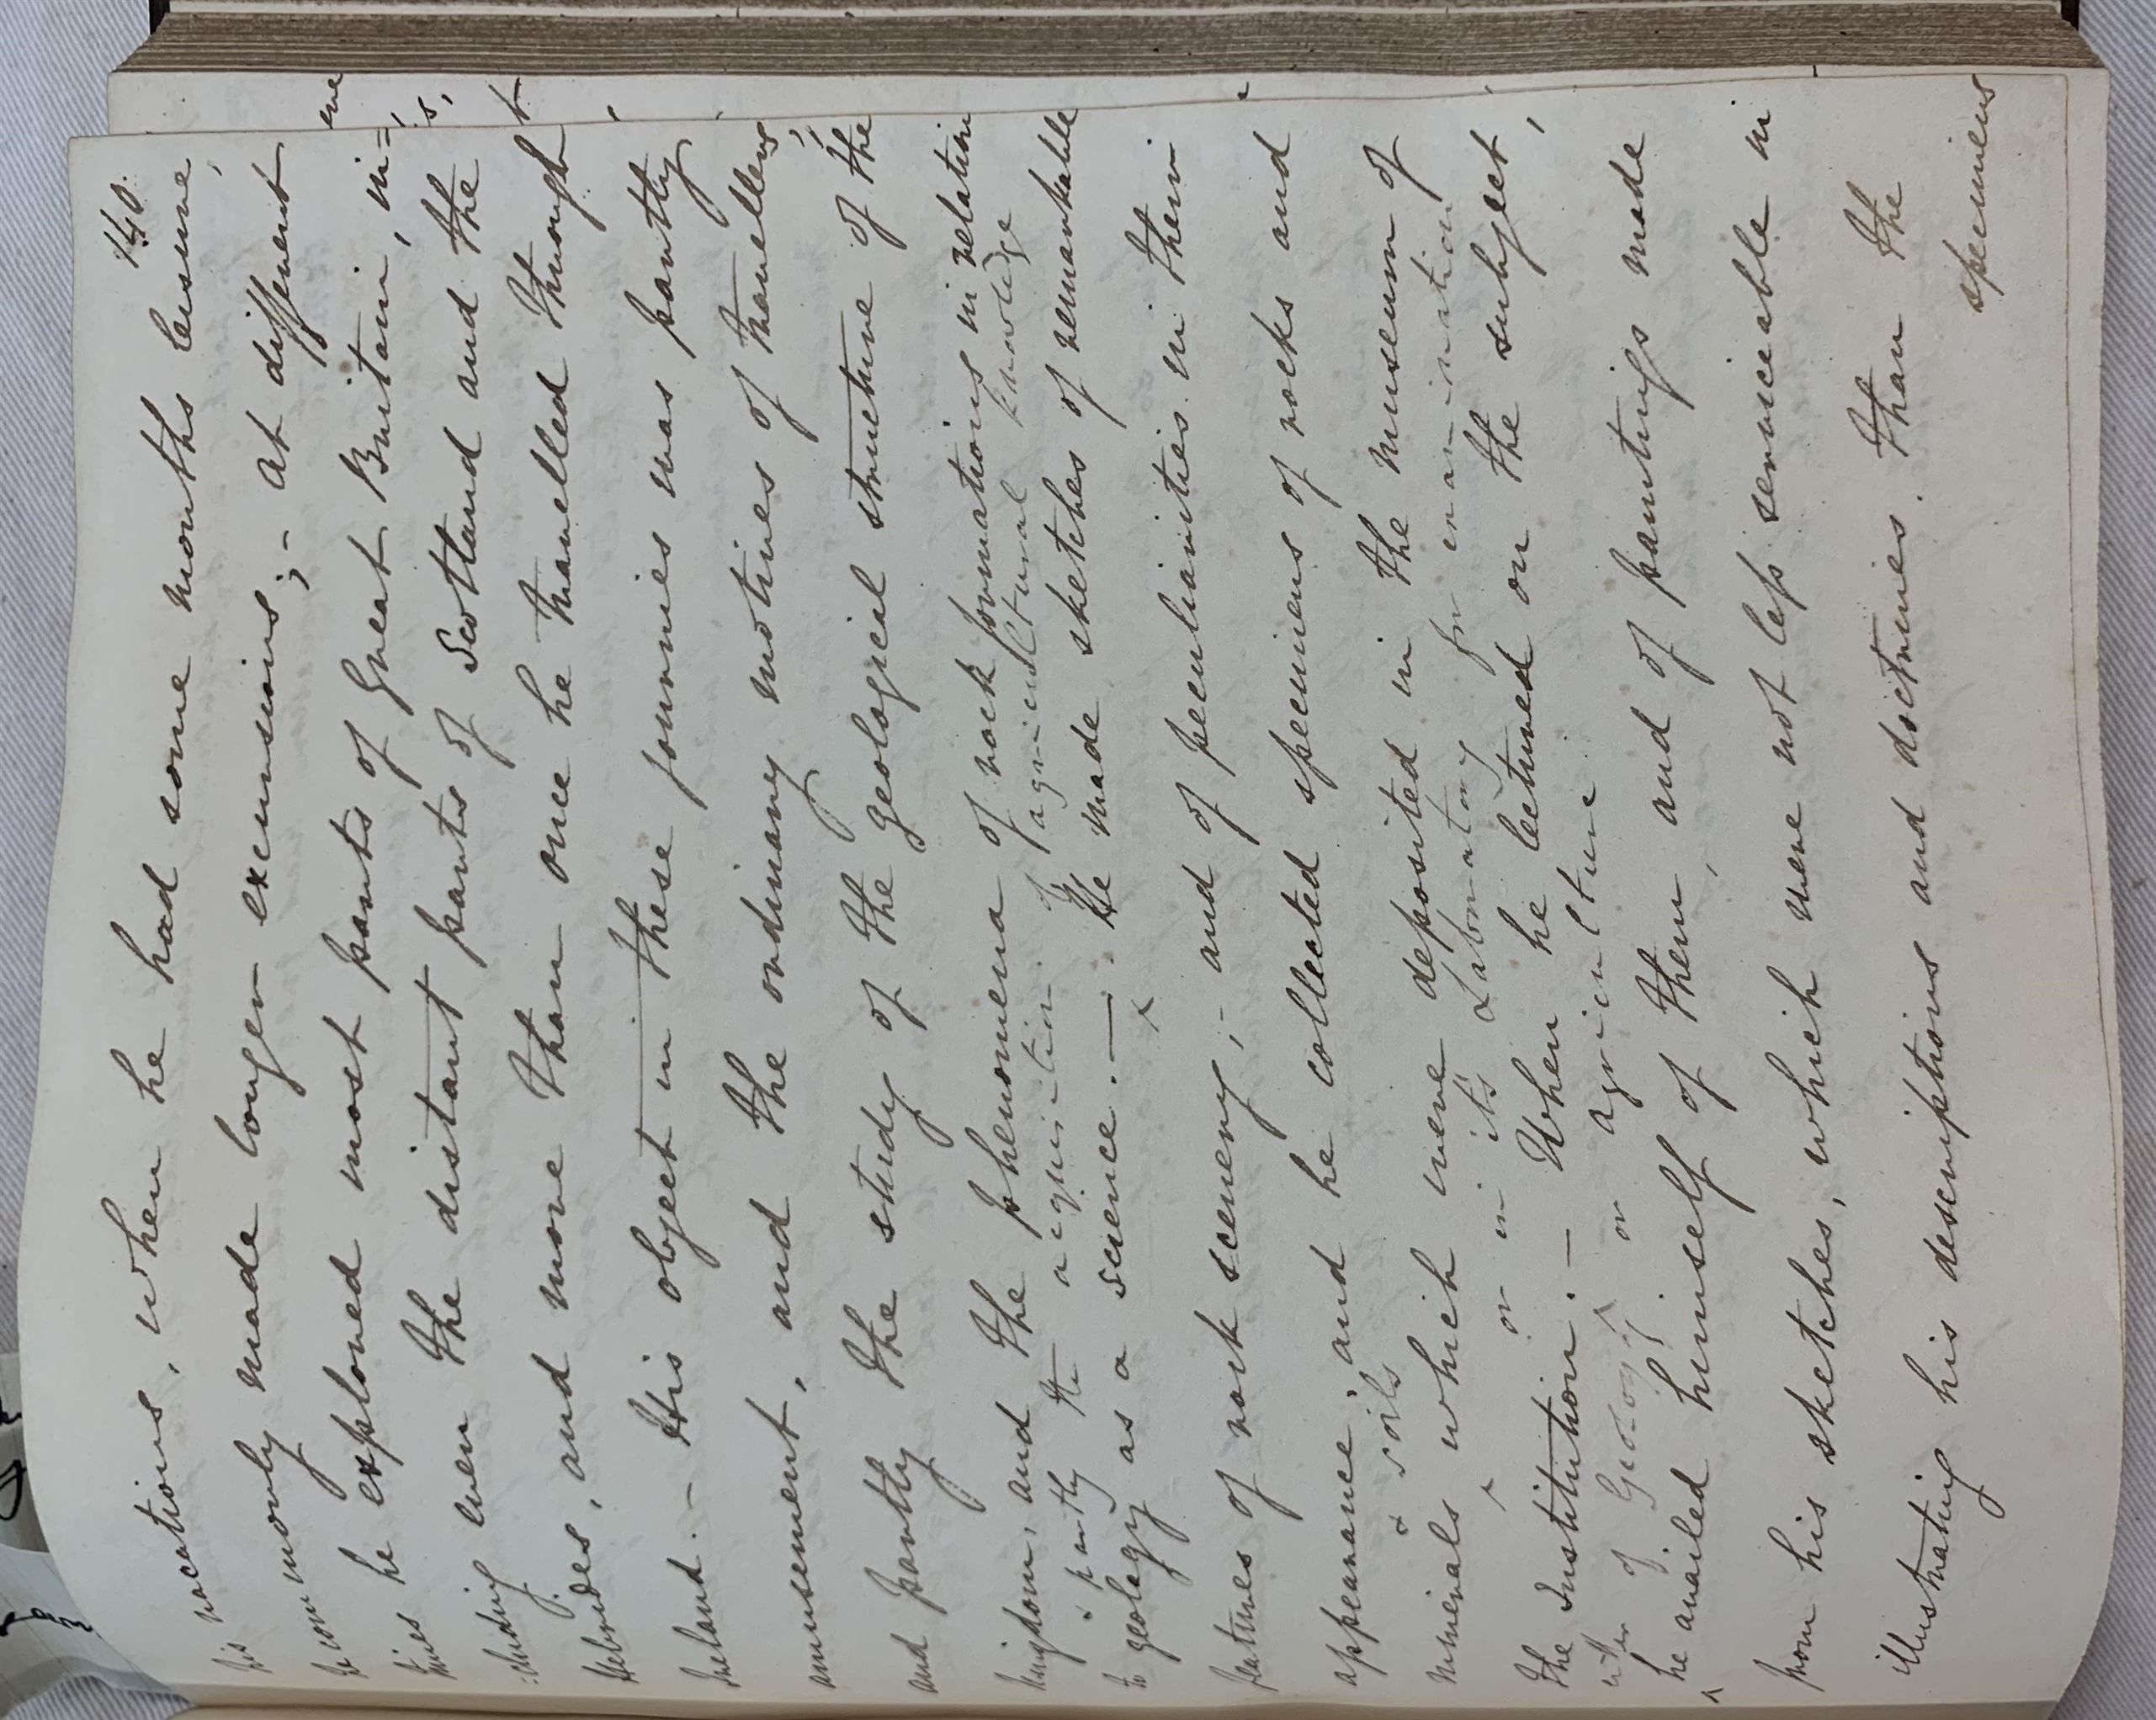 140.
his vacations, when he had some months leisure,
he commonly made longer excursions; – at different
times he explored most parts of Great Britain, in=
:cluding even the distant parts of Scotland and the
Hebrides, and more than once he travelled through
Ireland. – His object in these journies was partly
amusement, and the ordinary motives of travellers,
and partly the study of the geological structure of the
kingdom, and the phenomena of rock formations in relation
& partly the acquisition of agricultural knowledge
to geology as a science. — He made sketches of remarkable
features of rock scenery, – and of peculiarities in their
appearance, and he collected specimens of rocks and
& soils
minerals which were deposited in the museum of
or in its Laboratory for examination
the Institution. – When he lectured on the subject,
either of Geology or agriculture
he availed himself of them, and of paintings made
from his sketches, which were not less serviceable in
illustrating his descriptions and doctrines. than the
specimens